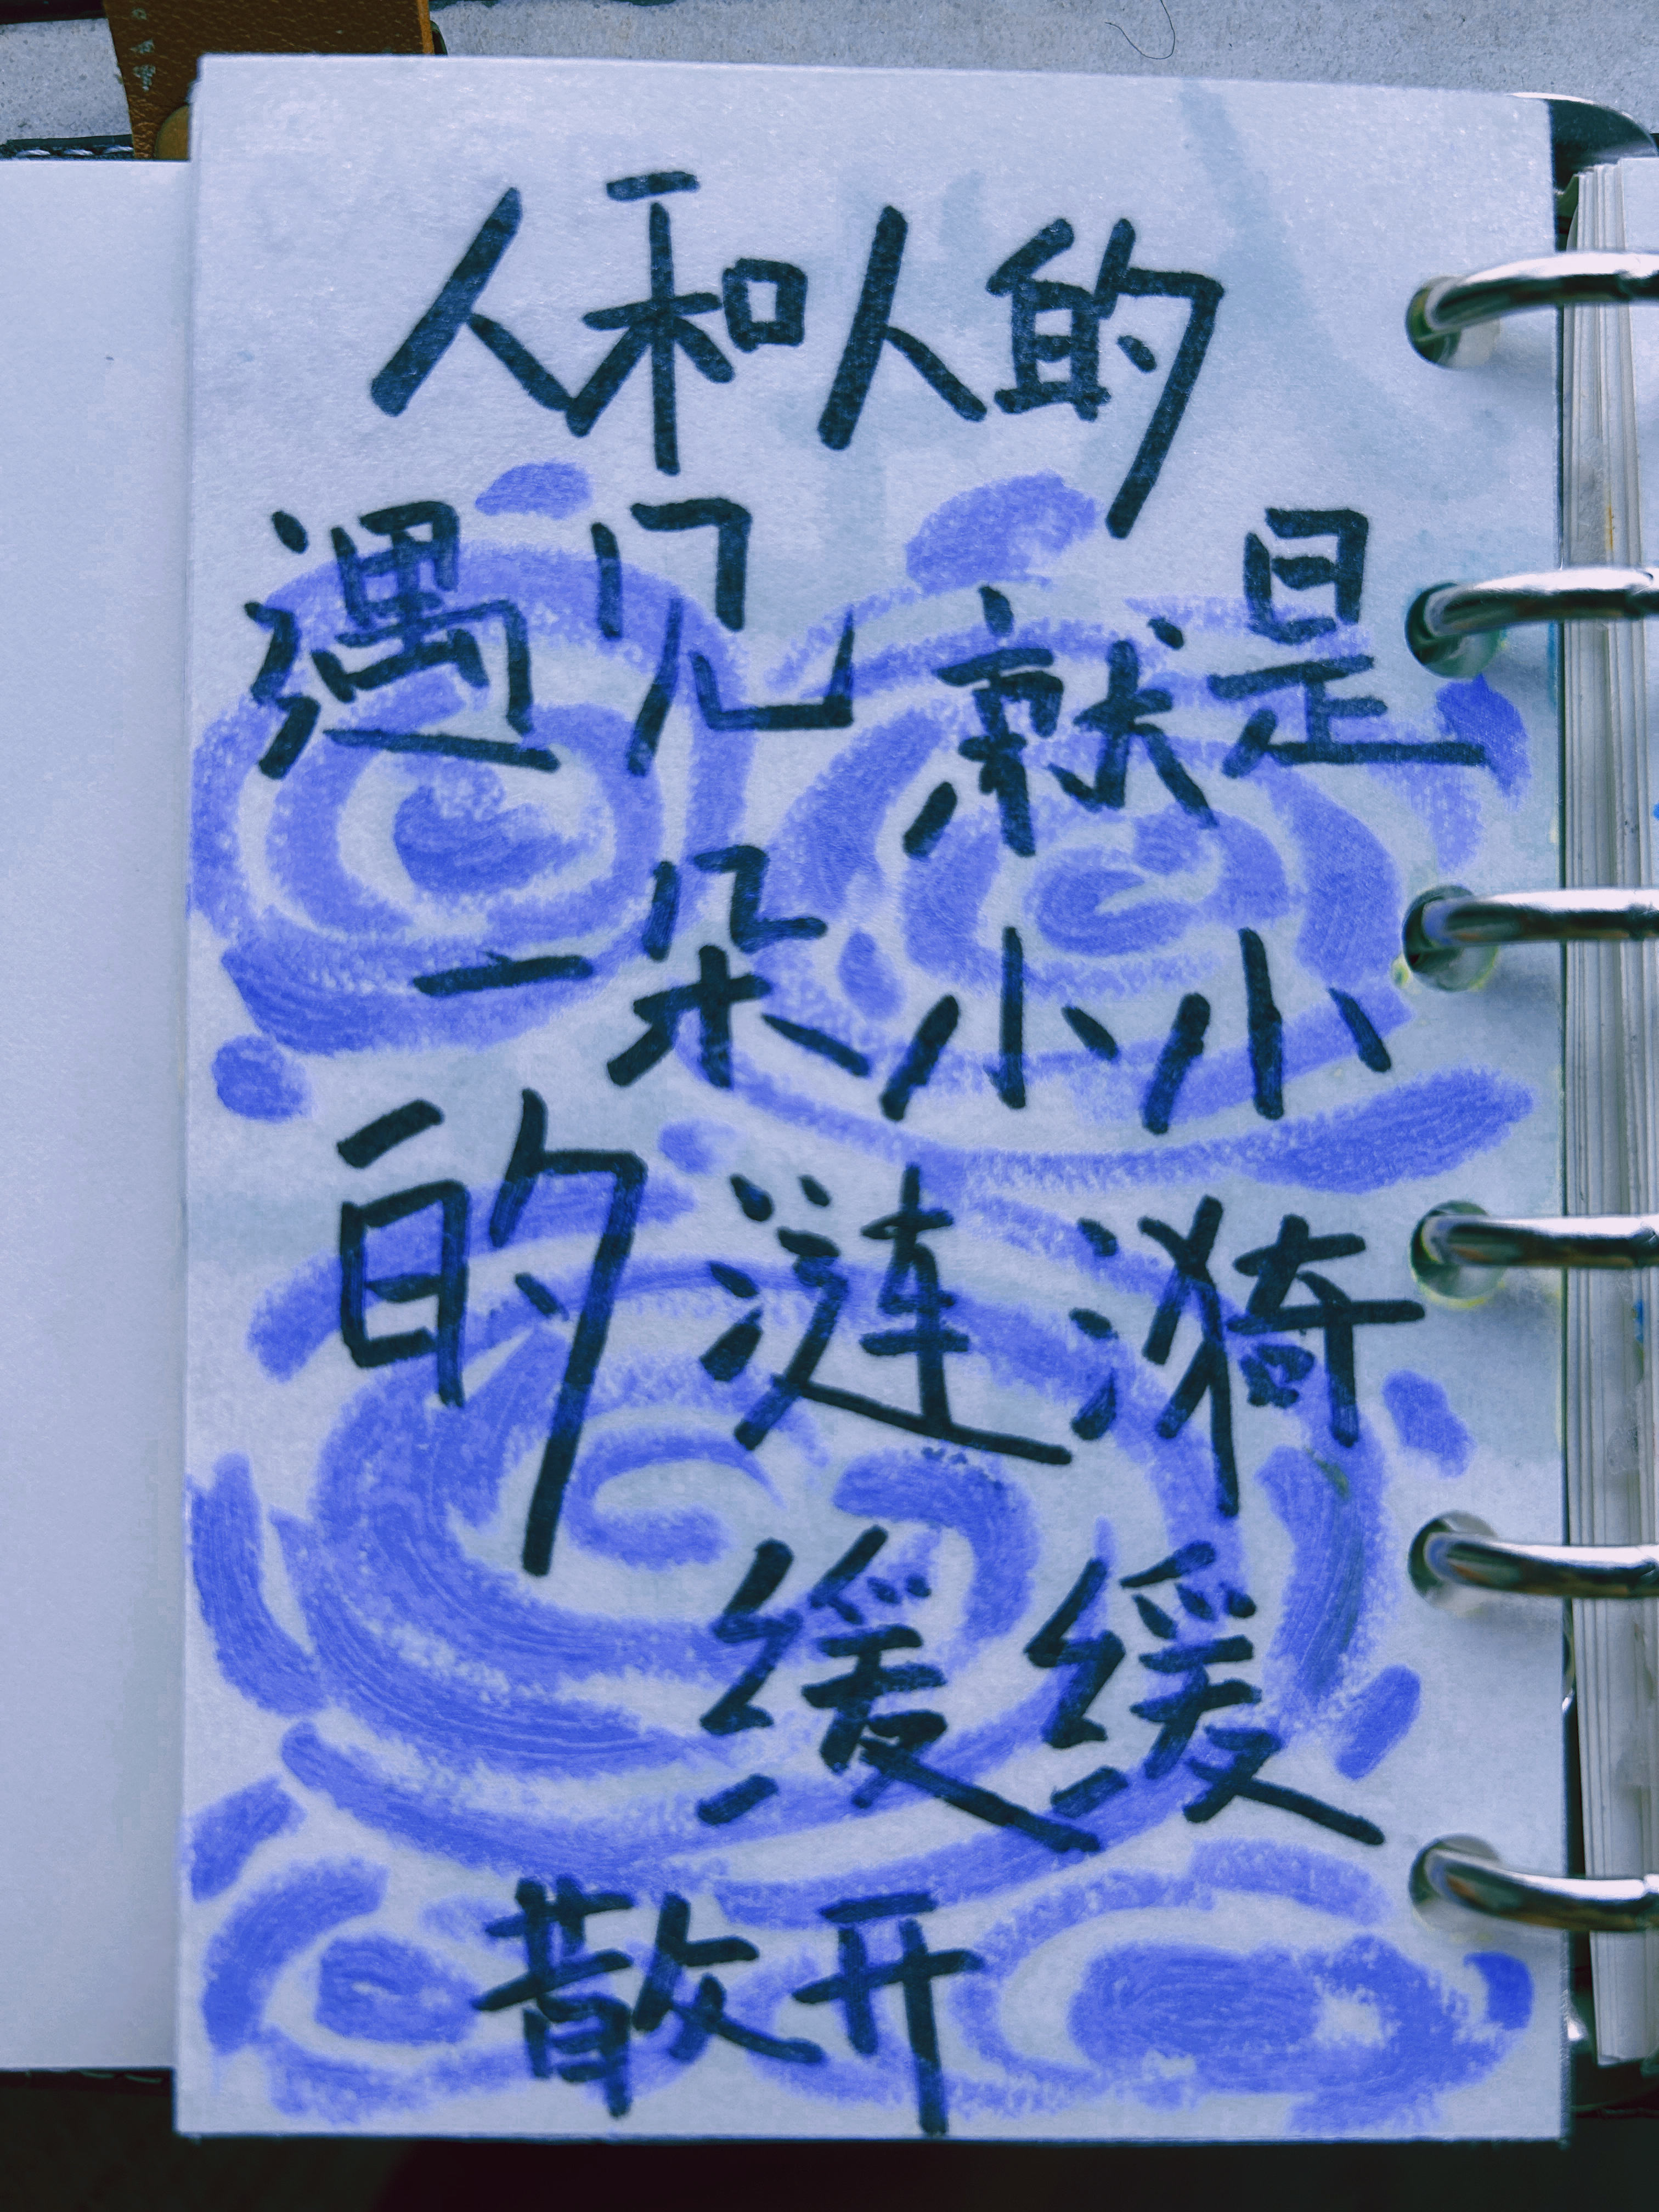 人和人的
遇见就是
一朵小小
的涟漪
缓缓
散开